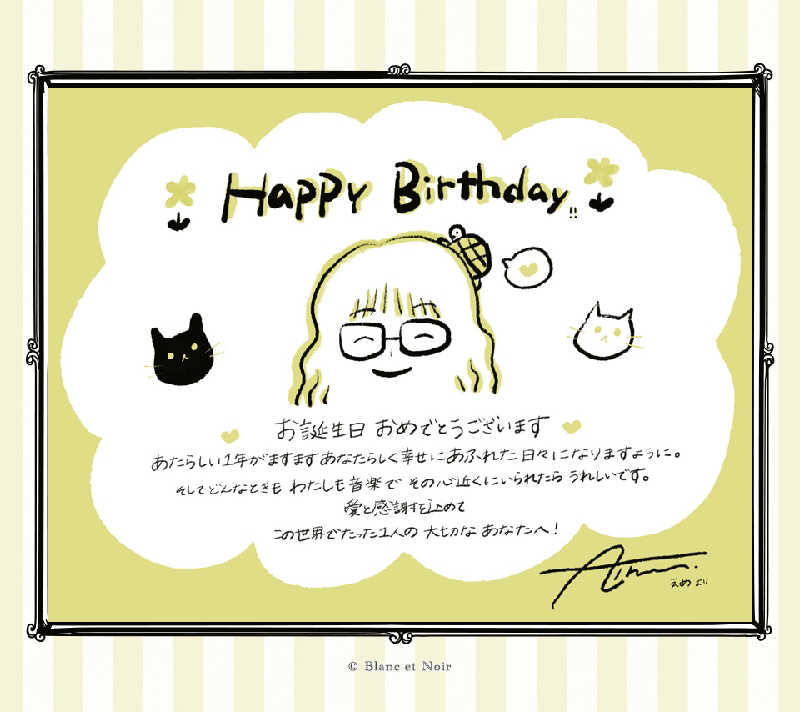 Happy Birthday!!
お誕生日 おめでとうございます
あたらしい1年がますます あなたらしく幸せにあふれた日々になりますように。
そしてどんなときも わたしも音楽で その心近くにいられたら うれしいです。
愛と感謝を込めて
この世界でたった1人の 大切な あなたへ!
Aimer.
えめより
© Blanc et Noir